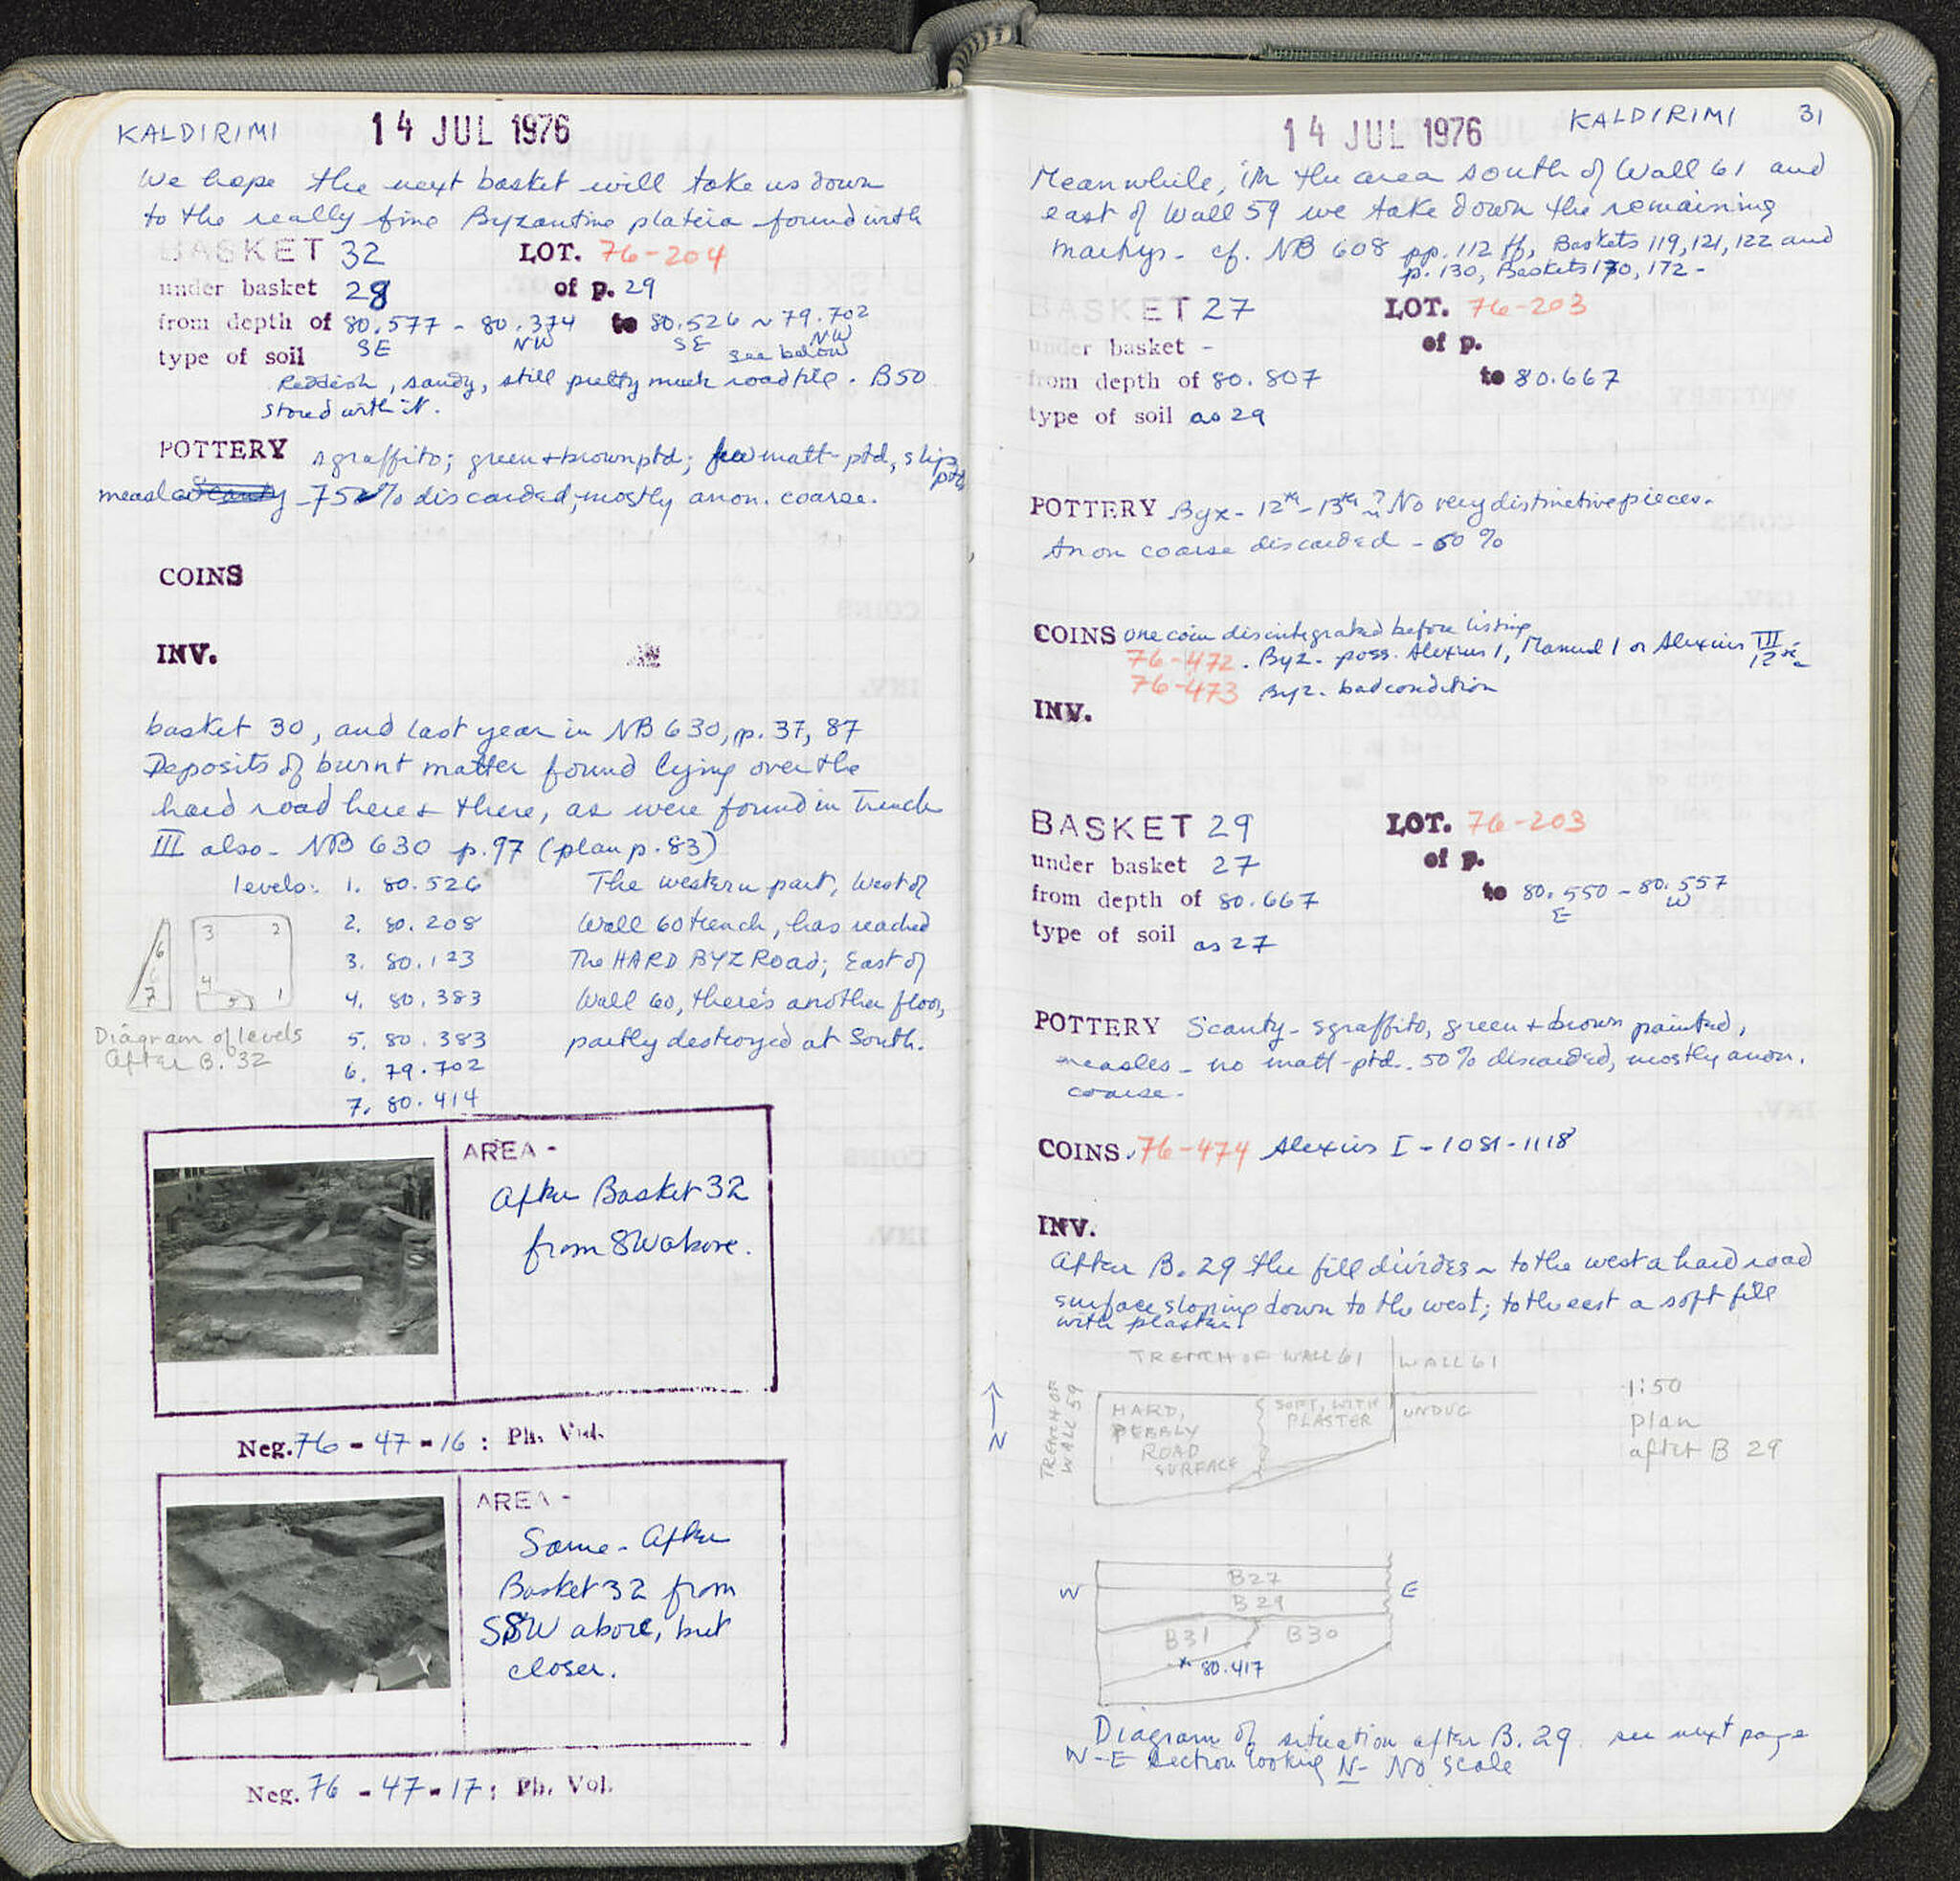 KALDIRIMI 14 JUL 1976
We hope the next basket will take us down
to the really fine Byzantine plateia found with
BASKET 32 LOT. 76-204
under basket 28 of p. 29
from depth of 80.577 - 80.374 to 80.526 ~ 79.702
SE NW SE NW
type of soil see below
Reddish, sandy, still pretty much road fill. B50
stored with it.
POTTERY sgraffito; green + brown ptd; few matt-ptd, slip ptd,
measles - 75% discarded, mostly anon. coarse.
COINS
INV.
basket 30, and last year in NB 630, p. 37, 87
Deposits of burnt matter found lying over the
hard road here + there, as were found in Trench
III also - NB 630 p. 97 (plan p. 83)
levels: 1. 80.526
2. 80.208
3. 80.123
4. 80.383
5. 80.383
6. 79.702
7. 80.414
The western part, West of
Wall 60 trench, has reached
The HARD BYZ Road; East of
Wall 60, there's another floor,
partly destroyed at South.
6
7
3 2
4
5 1
Diagram of levels
After B. 32
AREA -
After Basket 32
from SW above.
Neg. 76 - 47 - 16 : Ph. Vol.
AREA -
Same - After
Basket 32 from
SSW above, but
closer.
Neg. 76 - 47 - 17 : Ph. Vol.
14 JUL 1976 KALDIRIMI 31
Meanwhile, in the area south of Wall 61 and
east of Wall 59 we take down the remaining
martyrs - cf. NB 608 pp. 112 ff, Baskets 119, 121, 122 and
p. 130, Baskets 170, 172 -
BASKET 27 LOT. 76-203
under basket - of p.
from depth of 80.807 to 80.667
type of soil as 29
POTTERY Byz - 12th - 13th ? No very distinctive pieces.
Anon coarse discarded - 60%
COINS one coin disintegrated before listing
76-472. Byz - poss. Alexius I, Manuel I or Alexius III
12th c
76-473 Byz. bad condition
INV.
BASKET 29 LOT. 76-203
under basket 27 of p.
from depth of 80.667 to 80.550 - 80.557
E W
type of soil as 27
POTTERY Scanty - sgraffito, green + brown painted,
measles - no matt-ptd. 50% discarded, mostly anon.
coarse -
COINS. 76-474 Alexius I - 1081-1118
INV.
After B. 29 the fill divides ~ to the west a hard road
surface sloping down to the west; to the east a soft fill
with plaster.
TRENCH OF WALL 61 WALL 61
TRENCH OF
WALL 59
HARD,
PEBBLY
ROAD
SURFACE
SOFT, WITH
PLASTER
UNDUG
N
1:50
plan
after B 29
W E
B27
B29
B31 B30
* 80.417
Diagram of situation after B. 29 see next page
W-E section looking N - No scale